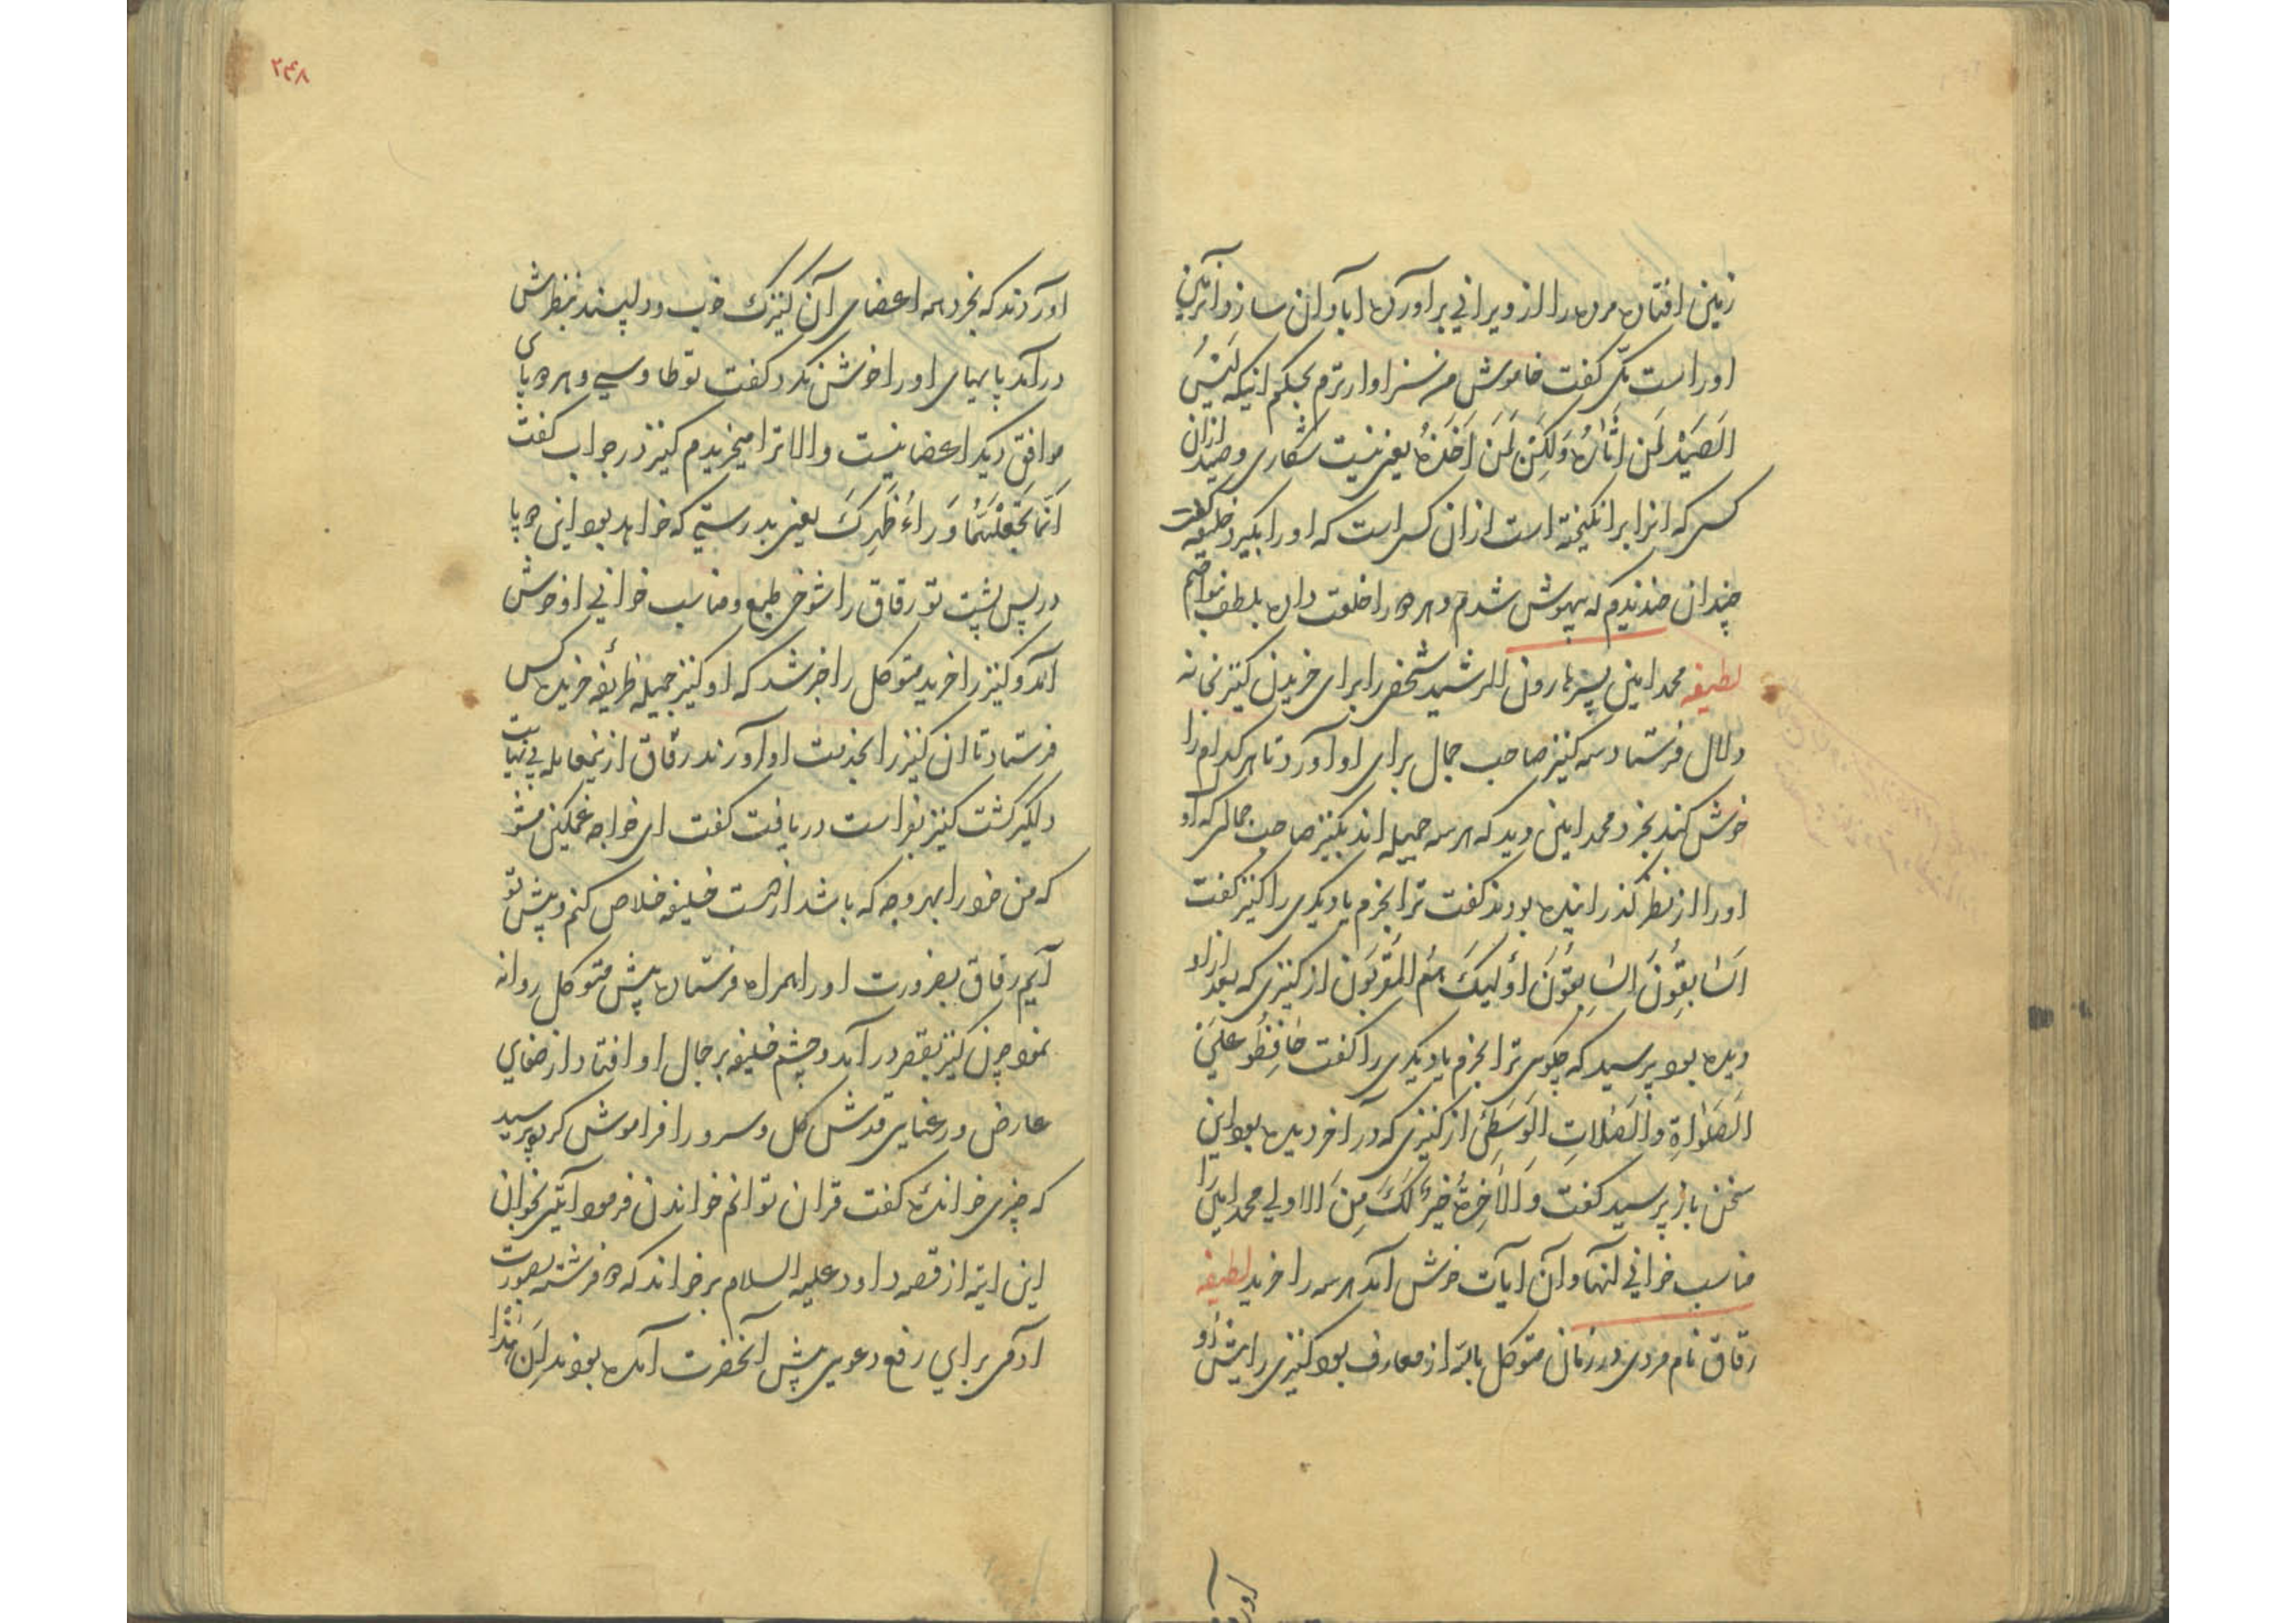 زمین افتاده مرده را از ویرانی برآورده آبادان سازد از آن
او است مکی گفت خاموش من سزاوارترم بحکم آنکه لَیْسَ
الصَیْدُ لِمَن اَثَارَهُ وَلٰکِن لِمَن اَخَذَهُ یعنی نیست شکاری و صید از آن
کسی که آنرا برانگیخته است از آن کسی است که او را بگیرد خلیفه گفت
چندان خندیدم که بیهوش شدم و هر دو را خلعت داده بلطف نواختم
لطیفه محمد امین پسر هارون الرشید شخصی را برای خریدن کنیز بخانه
دلال فرستاد سه کنیز صاحب جمال برای او آورد تا هر کدام را
خوش کند بخرد محمد امین دید که هر سه جمیله اند بکنیز صاحب جمالی که او
او را از نظر گذرانیده بودند گفت ترا بخرم یا دیگری را کنیز گفت
السَابِقُونَ السَابِقُونَ اُولٰئِکَ هُمُ المُقَرَّبُون از کنیزی که بعد از او
دیده بود پرسید که چگوی ترا بخرم یا دیگری را گفت حَافِظُو عَلَی
الصَلَوَاة وَالصَلَاتِ الوَسَطِیٰ از کنیزی که در آخر دیده بود این
سخن باز پرسید گفت وَالآخِرَةُ خَیْرٌ لَکَ مِنَ الاولی محمد امین را
مناسب خوانی آنها و آن آیات خوش آمد هر سه را خرید لطیفه
رقاق نام مردی در زمان متوکل بالله از معارف بود کنیزی را پیش او
آورد
۲۴۸
آوردند که بخرد همه اعضای آن کنیزک خوب و دلپسند بنظرش
درآمد پایهای او را خوش نکرد گفت تو طاوسی و هر دو پای
موافق دیگر اعضا نیست والا ترا میخریدم کنیز در جواب گفت
اِنَّمَا نَجْعَلُهُمَا وَرَاءُ ظَهْرِکَ یعنی بدرستی که خواهد بود این دو پا
در پس پشت تو رقاق را شوخی طبع و مناسب خوانی او خوش
آمد و کنیز را خرید متوکل را خبر شد که او کنیز جمیله ظریفه خریده کس
فرستاد تا آن کنیز را بخدمت او آورند رقاق از این معامله بی نهایت
دلگیر گشت کنیز بفراست دریافت گفت ای خواجه غمگین مشو
که من خود را بهر وجه که باشد از دست خلیفه خلاص کنم و پیش تو
آیم رقاق بضرورت او را همراه فرستاده پیش متوکل روانه
نمود چون کنیز بقصر درآمد و چشم خلیفه بر جمال او افتاد از صفای
عارض و رعنایی قدش گل و سرو را فراموش کرد پرسید
که چیزی خوانده گفت قرآن توانم خواندن فرمود آیتی بخوان
این آیه از قصه داود علیه السلام برخواند که دو فرشته بصورت
آدمی برای رفع دعوی پیش آنحضرت آمده بودند اِنَّ هٰذَا